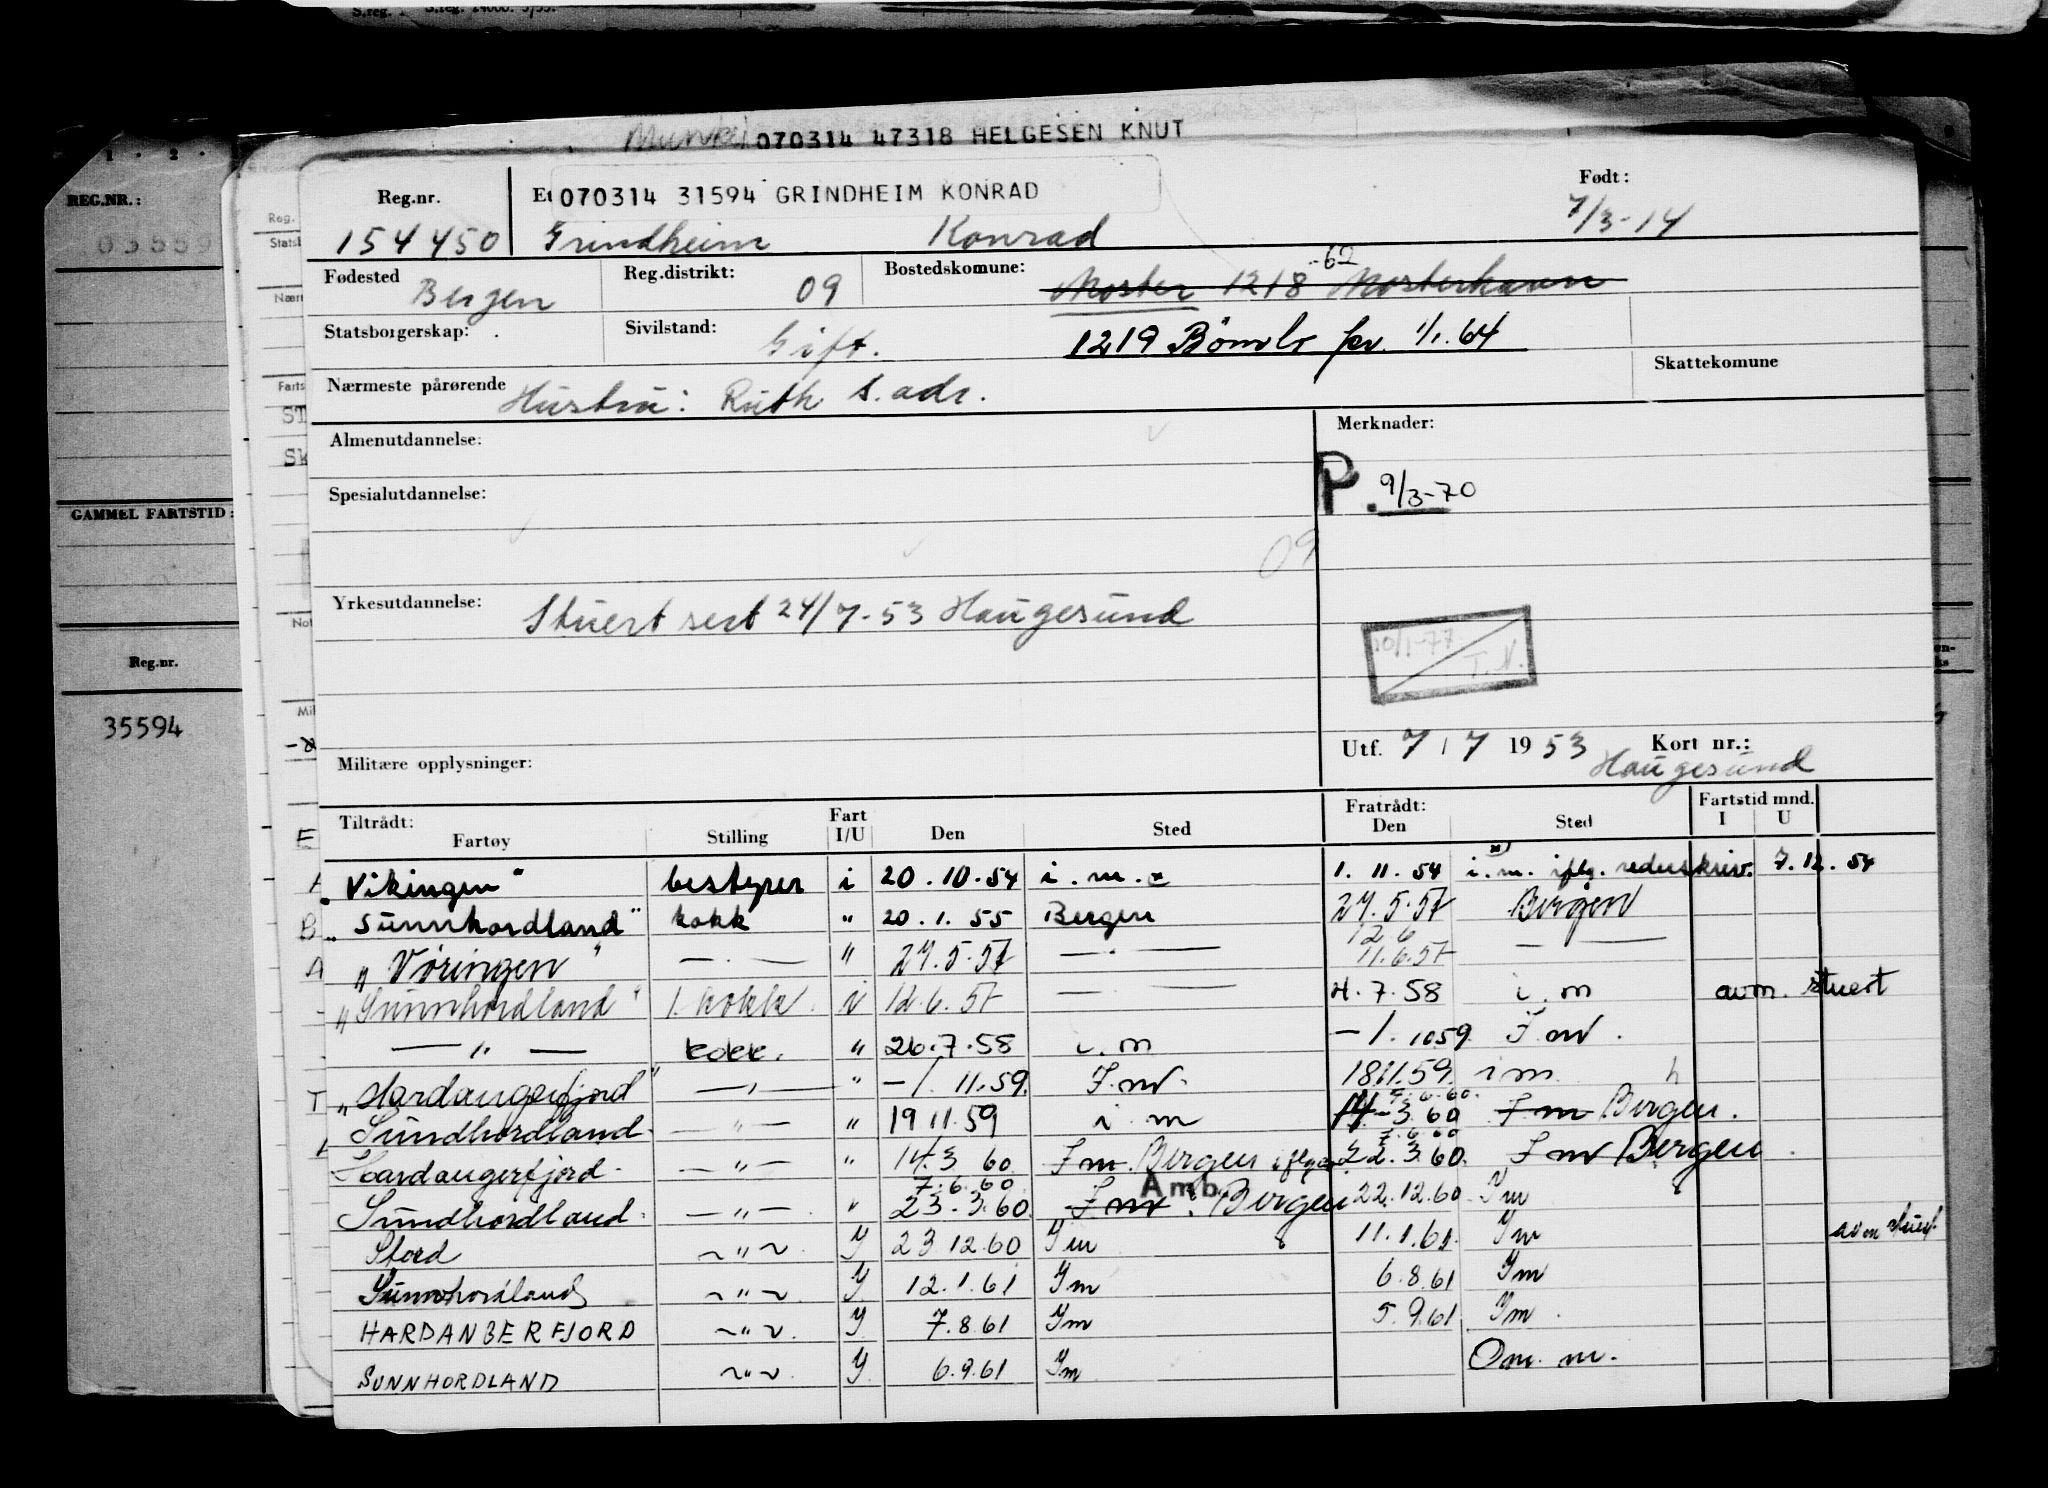 070314 47318 HELGESEN KNUT
Reg.nr. Et 070314 31594 GRINDHEIM KONRAD Født:
154450 Grindheim Konrad 7/3-14
Fødested Bergen Reg.distrikt: 09 Bostedskomune: Moster 1218 -62 Mosterhavn
Statsborgerskap: Sivilstand: Gift. 1219 Bömlo fra. 1/1. 64
Nærmeste pårørende Hustru: Ruth s. adr. Skattekomune
Almenutdannelse: Merknader:
Spesialutdannelse: P. 9/3-70
09
Yrkesutdannelse: Stuert sert 24/7-53 Haugesund
10/1-77 T.N.
Utf. 7 / 7 1953 Kort nr.:
Militære opplysninger: Haugesund
Tiltrådt: Fart Fratrådt: Fartstid mnd.
Fartøy Stilling I/U Den Sted Den Sted I U
"Vikingen" bestyrer i 20.10.54 i.m. x 1.11.54 x) i.m. iflg. rederskriv. 7.12.54
"Sunnhordland" kokk " 20.1.55 Bergen 27.5.57 Bergen
12 6
"Vøringen" — . — " 27.5.57 — . — 11.6.57 — —
"Sunnhordland" 1. kokk. i 12.6.57 — — 4.7.58 i.m avm. stuert
— " — kokk. " 26.7.58 i.m — 1.1059. I.m.
"Hardangerfjord" — " — " — 1.11.59. I.m. 18.11.59. i m h
7.6.60.
Sundhordland — " — " 19 11.59 i m 14.-3 60 I m Bergen.
7.6 60
Hardangerfjord — " — " 14.3 60. I m. Bergen iflg. 22.3.60. I m Bergen.
7.6.60 Amb.
Sundhordland. — " — " 23.3.60. I m. Bergen 22.12.60 Im
Stord ~ " ~ Y 23 12.60 Im 11.1.61. Im avm stuert
Sunnhordland ~ " ~ Y 12.1.61 Im 6.8.61 Im
HARDANGERFJORD ~ " ~ Y 7.8.61 Im 5.9.61 Im.
SUNNHORDLAND ~ " ~ Y 6.9.61 Im Om. m.
REG.NR.:
03559
GAMMEL FARTSTID:
Reg.nr.
35594